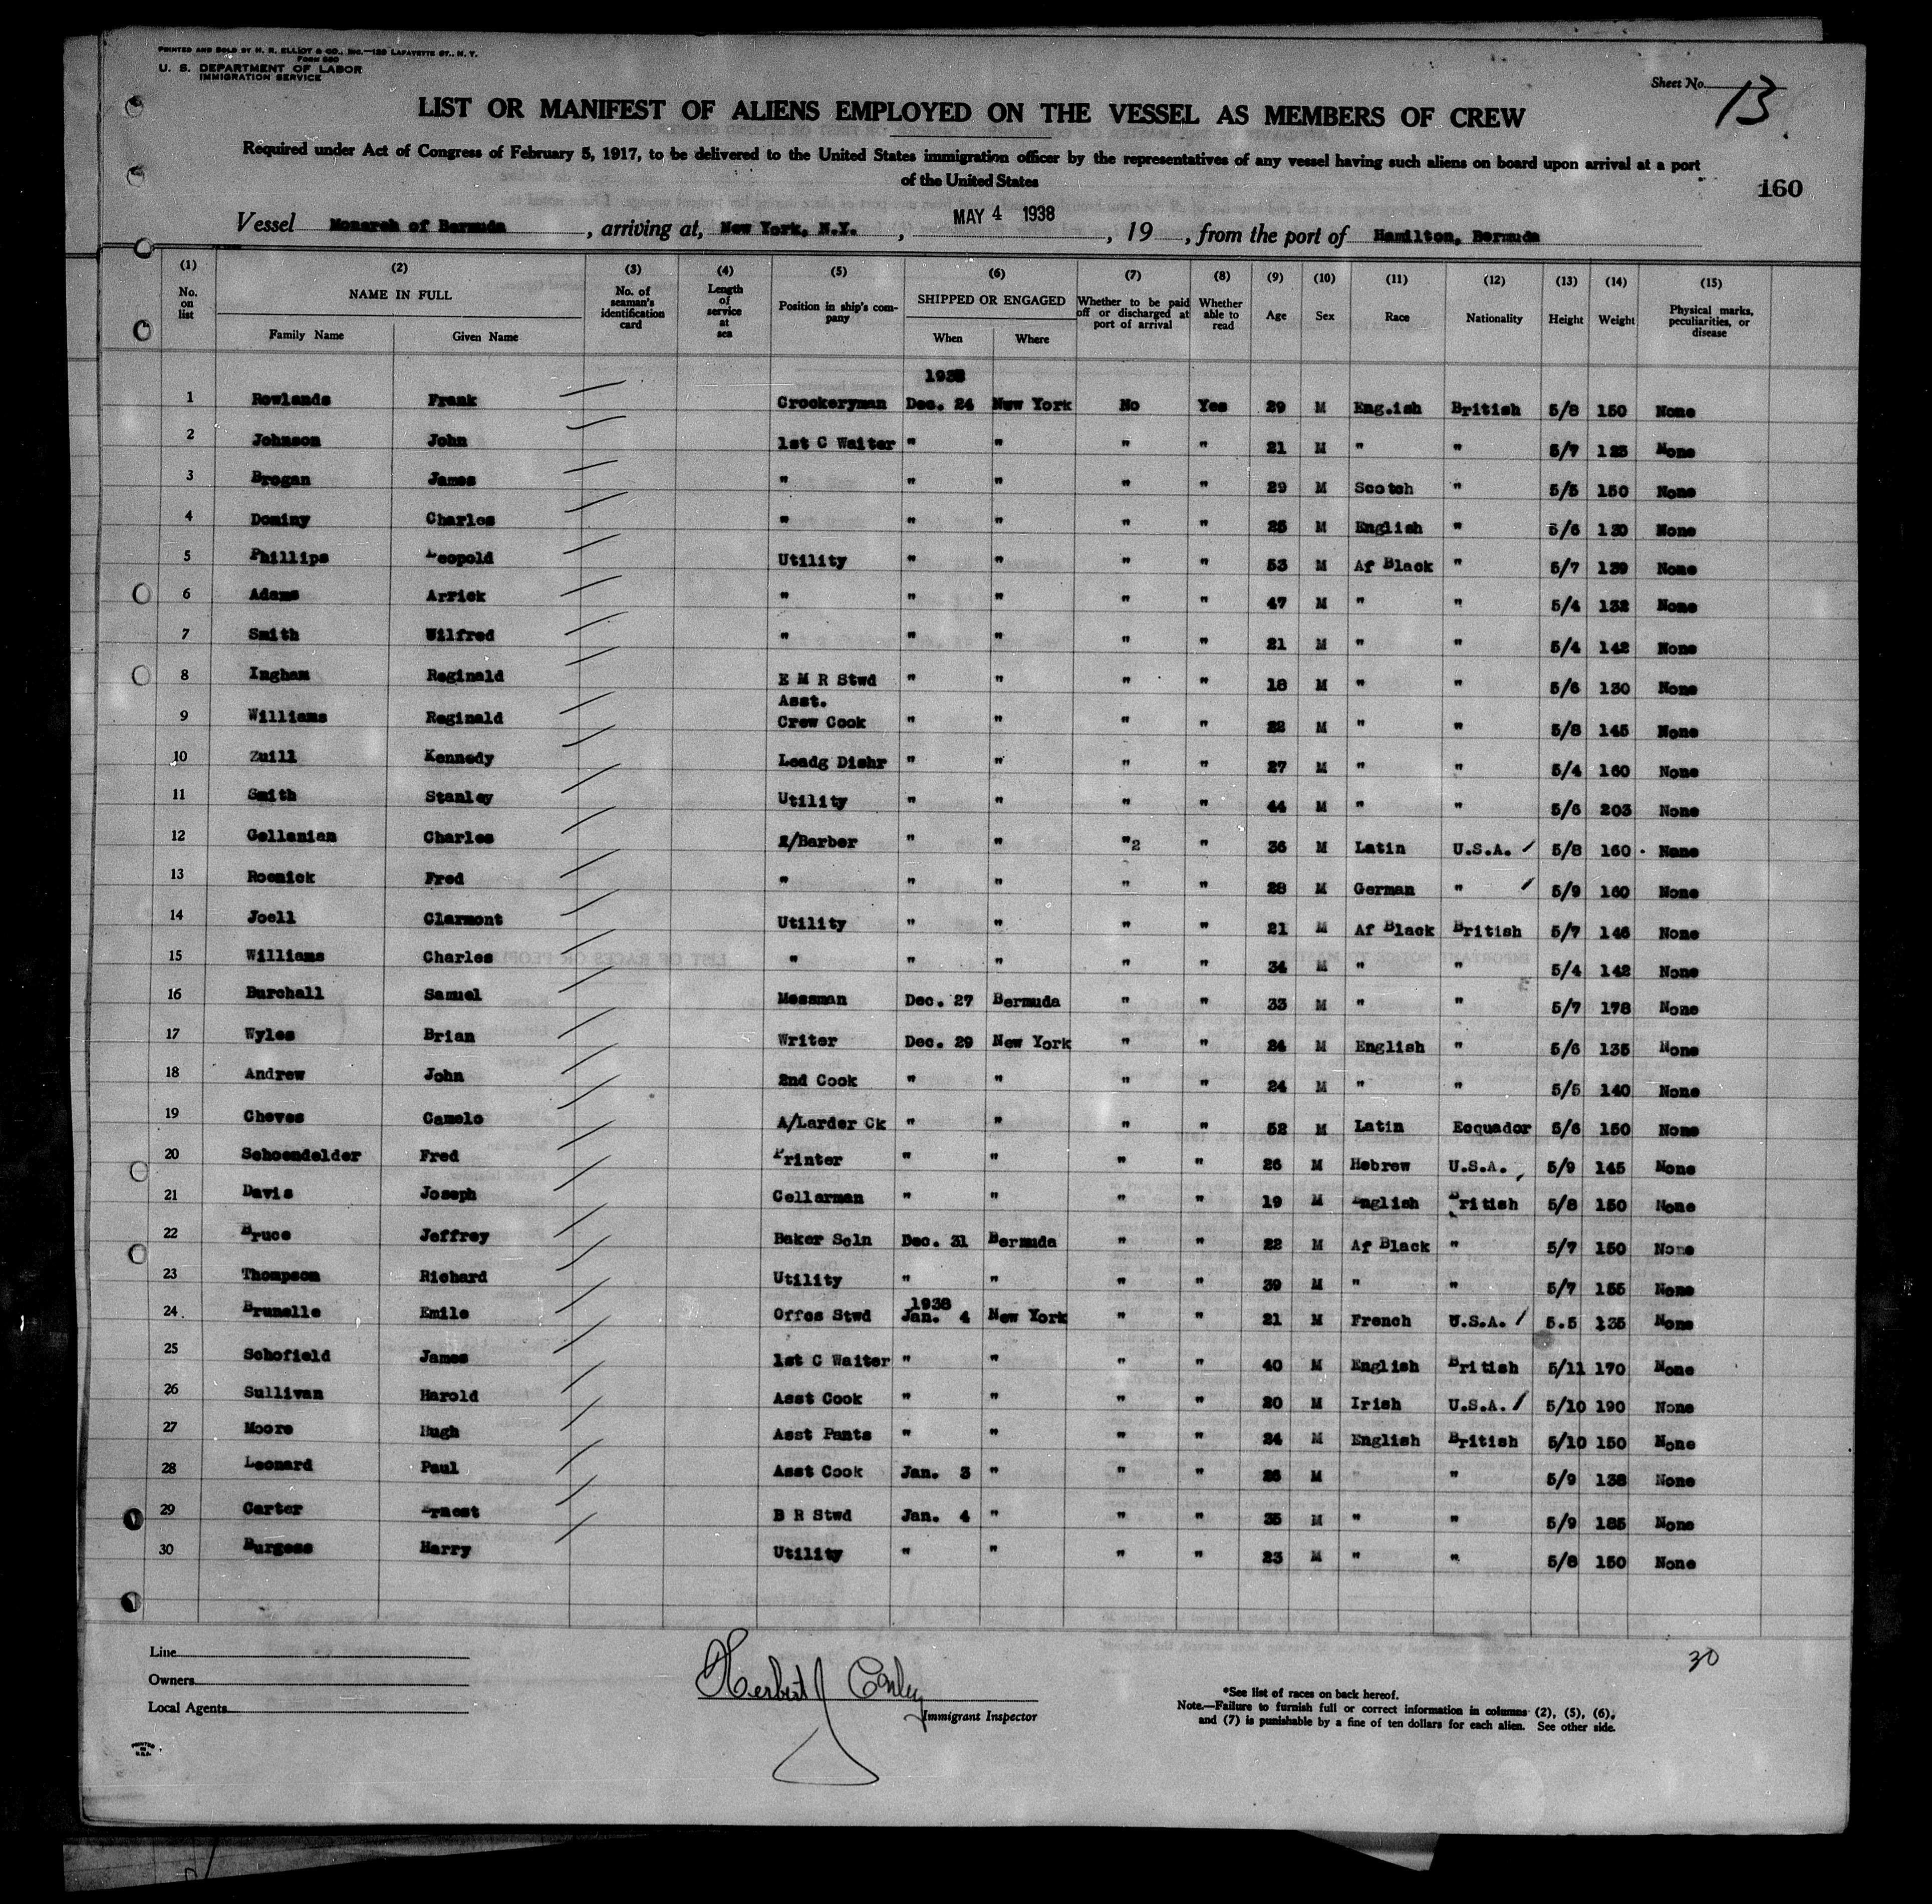 PRINTED AND SOLD BY H. R. ELLIOT & CO., INC.—129 LAFAYETTE ST., N. Y.
FORM 680
U. S. DEPARTMENT OF LABOR
IMMIGRATION SERVICE
Sheet No. 13
LIST OR MANIFEST OF ALIENS EMPLOYED ON THE VESSEL AS MEMBERS OF CREW
Required under Act of Congress of February 5, 1917, to be delivered to the United States immigration officer by the representatives of any vessel having such aliens on board upon arrival at a port
of the United States
160
Vessel Monarch of Bermuda, arriving at, New York, N.Y., MAY 4 1938, 19, from the port of Hamilton, Bermuda
(1) (2) (3) (4) (5) (6) (7) (8) (9) (10) (11) (12) (13) (14) (15)
No. on list NAME IN FULL Family Name Given Name No. of seaman's identification card Length of service at sea Position in ship's company SHIPPED OR ENGAGED When Where Whether to be paid off or discharged at port of arrival Whether able to read Age Sex Race Nationality Height Weight Physical marks, peculiarities, or disease
1 Rowlands Frank Crockeryman Dec. 24 New York No Yes 29 M Eng.ish British 5/8 150 None
2 Johnson John 1st C Waiter " " " " 21 M " " 5/7 125 None
3 Brogan James " " " " " 29 M Scotch " 5/5 150 None
4 Dominy Charles " " " " " 25 M English " 5/6 130 None
5 Phillips Leopold Utility " " " " 53 M Af Black " 5/7 139 None
6 Adams Arrick " " " " " 47 M " " 5/4 132 None
7 Smith Wilfred " " " " " 21 M " " 5/4 142 None
8 Ingham Reginald E M R Stwd " " " " 18 M " " 5/6 130 None
9 Williams Reginald Asst. Crew Cook " " " " 22 M " " 5/8 145 None
10 Zuill Kennedy Leadg Dishr " " " " 27 M " " 5/4 160 None
11 Smith Stanley Utility " " " " 44 M " " 5/6 203 None
12 Gellanian Charles /Barber " " "2 " 36 M Latin U.S.A. 5/8 160 None
13 Roenick Fred " " " " " 28 M German " 5/9 160 None
14 Joell Clarmont Utility " " " " 21 M Af Black British 5/7 146 None
15 Williams Charles " " " " " 34 M " " 5/4 142 None
16 Burchall Samuel Messman Dec. 27 Bermuda " " 33 M " " 5/7 178 None
17 Wyles Brian Writer Dec. 29 New York " " 24 M English " 5/6 135 None
18 Andrew John 2nd Cook " " " " 24 M " " 5/5 140 None
19 Cheves Camelo A/Larder Ck " " " " 52 M Latin Eequador 5/6 150 None
20 Schoendelder Fred Printer " " " " 26 M Hebrew U.S.A. 5/9 145 None
21 Davis Joseph Cellarman " " " " 19 M English British 5/8 150 None
22 Bruce Jeffrey Baker Scln Dec. 31 Bermuda " " 22 M Af Black " 5/7 150 None
23 Thompson Richard Utility " " " " 39 M " " 5/7 155 None
24 Brunelle Emile Offcs Stwd 1938 Jan. 4 New York " " 21 M French U.S.A. 5.5 135 None
25 Schofield James 1st C Waiter " " " " 40 M English British 5/11 170 None
26 Sullivan Harold Asst Cook " " " " 20 M Irish U.S.A. 5/10 190 None
27 Moore Hugh Asst Pants " " " " 24 M English British 5/10 150 None
28 Leonard Paul Asst Cook Jan. 3 " " " 26 M " " 5/9 138 None
29 Carter Ernest B R Stwd Jan. 4 " " " 35 M " " 5/9 185 None
30 Burgess Harry Utility " " " " 23 M " " 5/8 150 None
30
Line
Owners
Local Agents
Herbert J Conley
Immigrant Inspector
*See list of races on back hereof.
Note.—Failure to furnish full or correct information in columns (2), (5), (6),
and (7) is punishable by a fine of ten dollars for each alien. See other side.
PRINTED
IN
U.S.A.